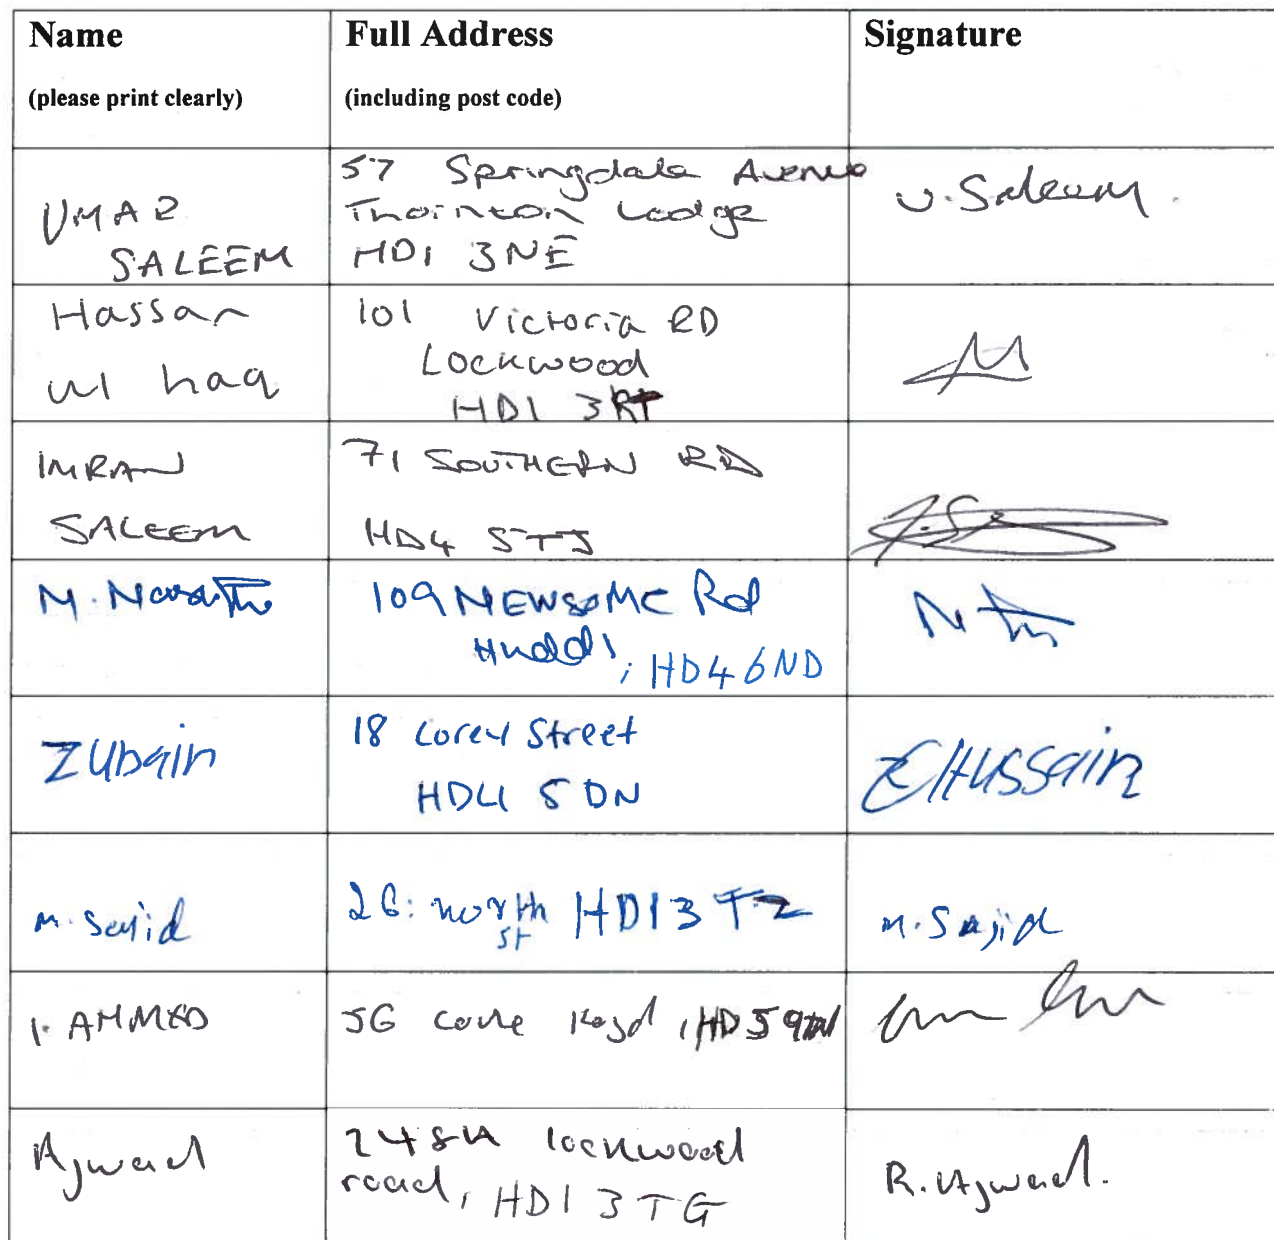 Name
(please print clearly)
Full Address
(including post code)
Signature
UMAR
SALEEM
57 Springdale Avenue
Thornton Lodge
HD1 3NE
U. Saleem.
Hassan
ul haq
101 Victoria RD
Lockwood
HD1 3RT
IMRAN
SALEEM
71 SOUTHERN RD
HD4 5TJ
M.
109 NEWSOME Rd
Hudds, HD4 6ND
Zubair
18 Street
HD4 5DN
Z Hussain
M. Sajid
26: north HD1 3TZ
st
M. Sajid
I. AHMED
56 , HD5
Ajwad
248A lockwood
road, HD1 3TG
R. Ajwad.